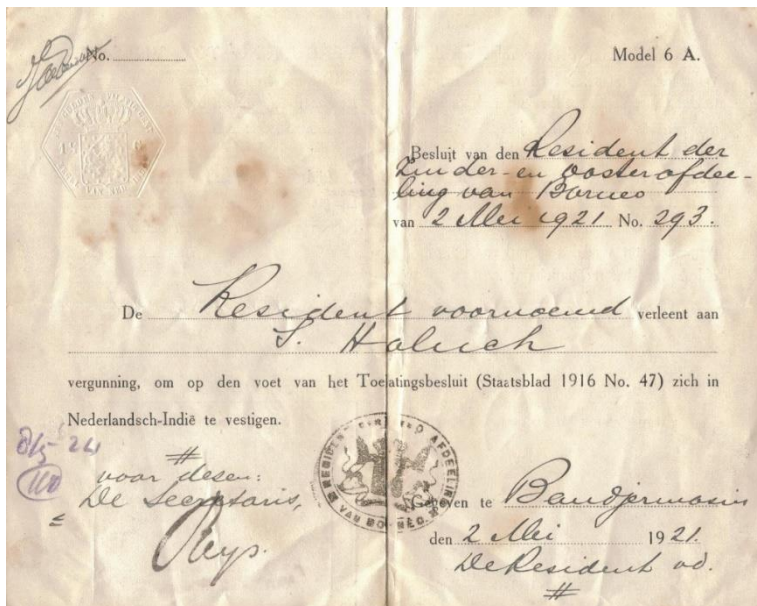 No.
Model 6 A.
Besluit van den Resident der
Zuider- en Oosterafdee-
ling van Borneo
van 2 Mei 1921. No. 293.
De Resident voornoemd verleent aan
S. Holuch
vergunning, om op den voet van het Toelatingsbesluit (Staatsblad 1916 No. 47) zich in
Nederlandsch-Indië te vestigen.
voor dezen:
De Secretaris,
Gegeven te Bandjermasin
den 2 Mei 1921.
De Resident vd.
VAN BORNEO